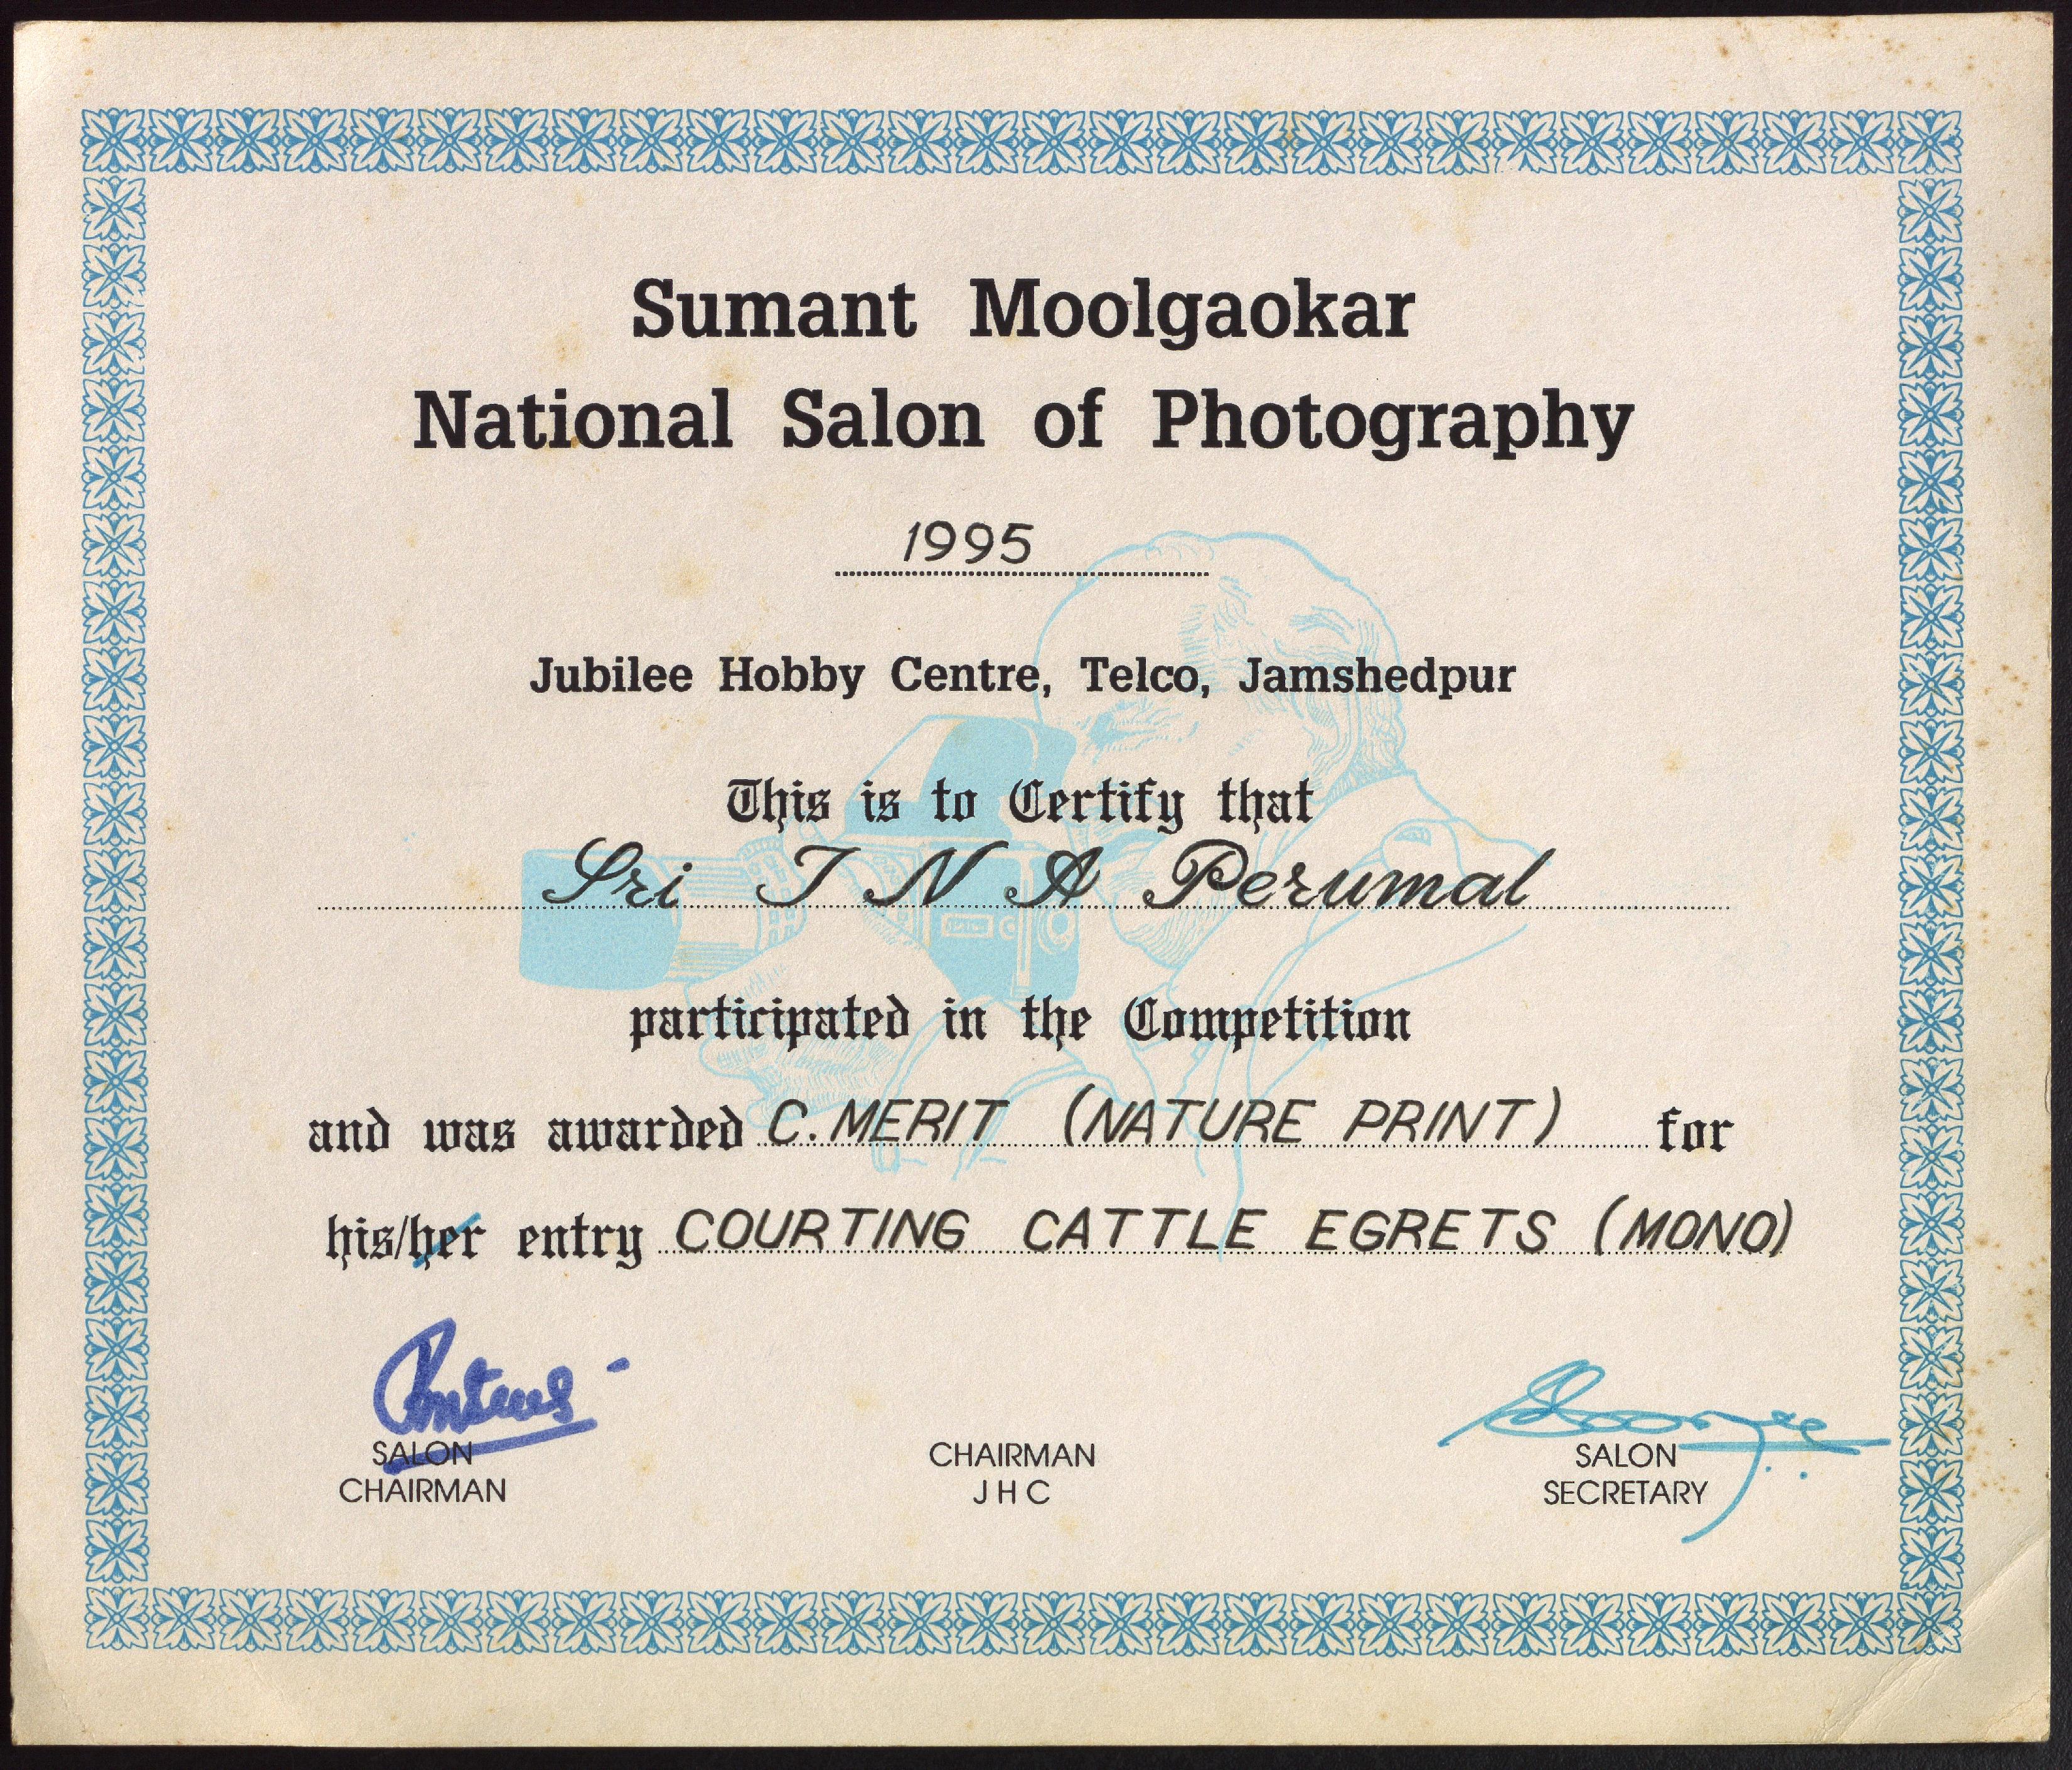 Sumant Moolgaokar
National Salon of Photography
1995
Jubilee Hobby Centre, Telco, Jamshedpur
This is to Certify that
Sri T N A Perumal
participated in the Competition
and was awarded C. MERIT (NATURE PRINT) for
his/her entry COURTING CATTLE EGRETS (MONO)
SALON CHAIRMAN
CHAIRMAN JHC
SALON SECRETARY